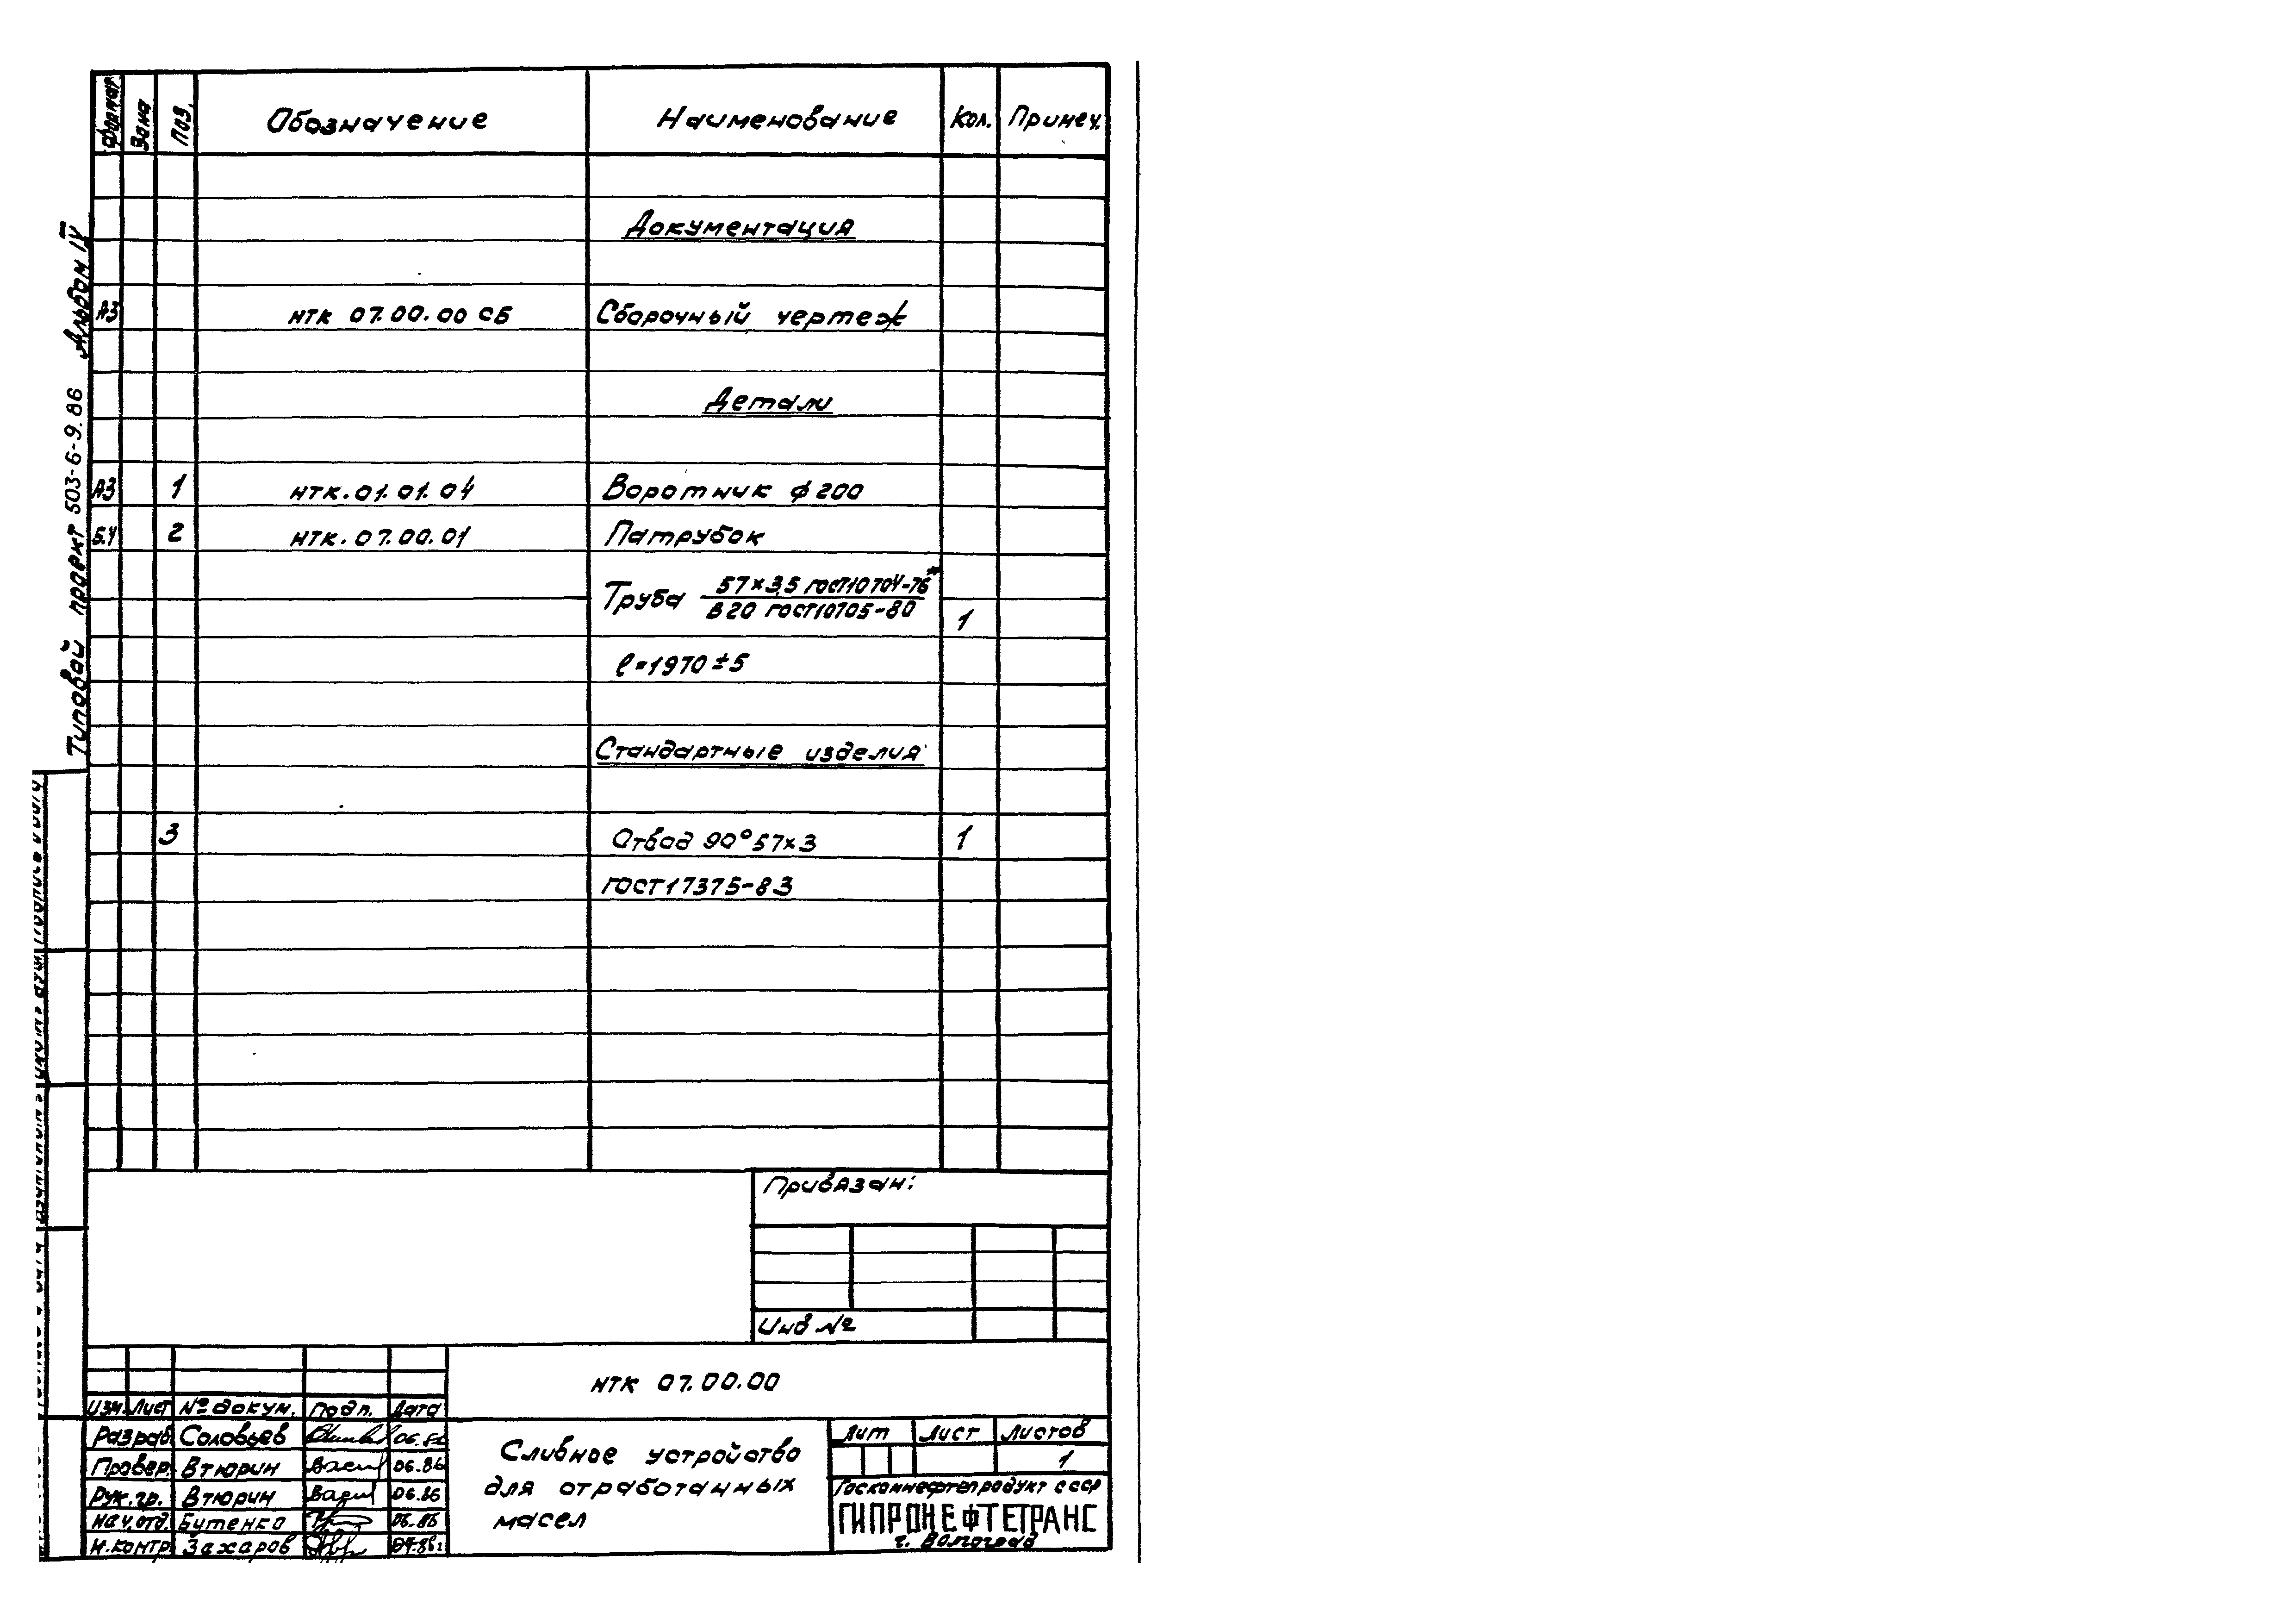 Формат Зона Поз. Обозначение Наименование Кол. Примеч.
Документация
А3 НТК 07.00.00 СБ Сборочный чертеж
Детали
А3 1 НТК.01.01.04 Воротник ф 200
Б.Ч 2 НТК.07.00.01 Патрубок
Труба 57×3,5 ГОСТ10704-76*
В20 ГОСТ10705-80
1
ℓ=1970±5
Стандартные изделия
3 Отвод 90° 57×3 1
ГОСТ17375-83
Типовой проект 503-6-9.86 Альбом IV
Привязан:
Инв №
НТК 07.00.00
Изм. Лист № докум. Подп. Дата
Разраб. Соловьев 06.86
Провер. Втюрин 06.86
Рук.гр. Втюрин 06.86
Нач.отд. Бутенко 06.86
Н.контр. Захаров
Сливное устройство
для отработанных
масел
Лит Лист Листов
1
Госкомнефтепродукт СССР
ГИПРОНЕФТЕТРАНС
г. Волгоград